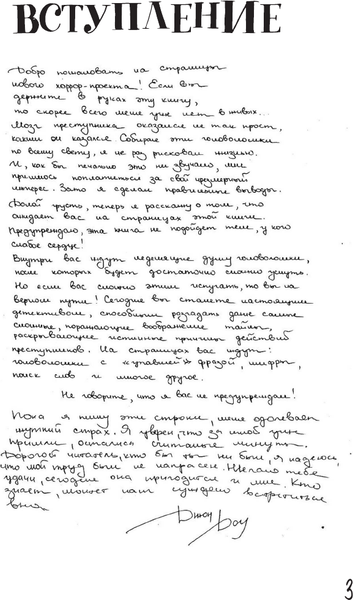 ВСТУПЛЕНИЕ
Добро пожаловать на страницы
нового хоррор-проекта! Если вы
держите в руках эту книгу,
то скорее всего меня уже нет в живых...
Мозг преступника оказался не так прост,
каким он казался. Собирая эти головоломки
по всему свету, я не раз рисковал жизнью.
И, как бы печально это ни звучало, мне
пришлось поплатиться за свой чрезмерный
интерес. Зато я сделал правильные выводы.
грустно, теперь я расскажу о том, что
ожидает вас на страницах этой книги.
Предупреждаю, эта книга не подойдет тем, у кого
слабое сердце!
Внутри вас ждут леденящие душу головоломки,
после которых будет достаточно сложно уснуть.
Но если вас сложно этим испугать, то вы на
верном пути! Сегодня вы станете настоящим
детективом, способным разгадать даже самые
сложные, поражающие воображение тайны,
раскрывающие истинные причины действий
преступников. На страницах вас ждут:
головоломки с «упавшей» фразой, шифры,
поиск слов и многое другое.
Не говорите, что я вас не предупреждал!
Пока я пишу эти строки, меня одолевает
жуткий страх. Я уверен, что за мной уже
пришли, остались считаные минуты.
Дорогой читатель, кто бы ты ни был, я надеюсь,
что мой труд был не напрасен. Желаю тебе
удачи, сегодня она пригодится и мне. Кто
знает, может нам суждено встретиться
вновь.
Джон Доу
3